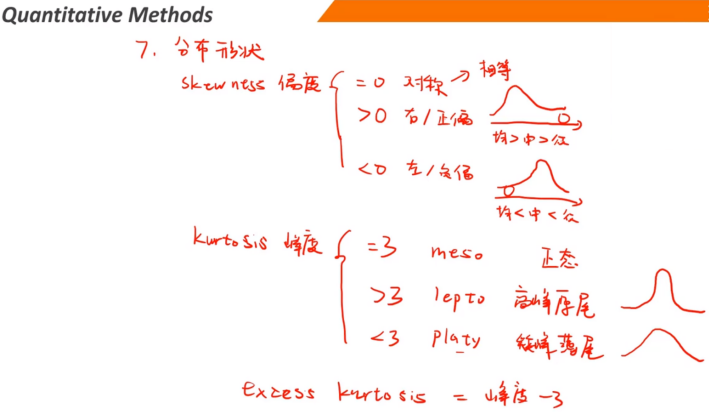 Quantitative Methods
7. 分布形状
skewness 偏度 =0 对称 → 相等
>0 右/正偏
均>中>众
<0 左/负偏
均<中<众
kurtosis 峰度 =3 meso 正态
>3 lepto 高峰厚尾
<3 platy 峰薄尾
excess kurtosis = 峰度 -3